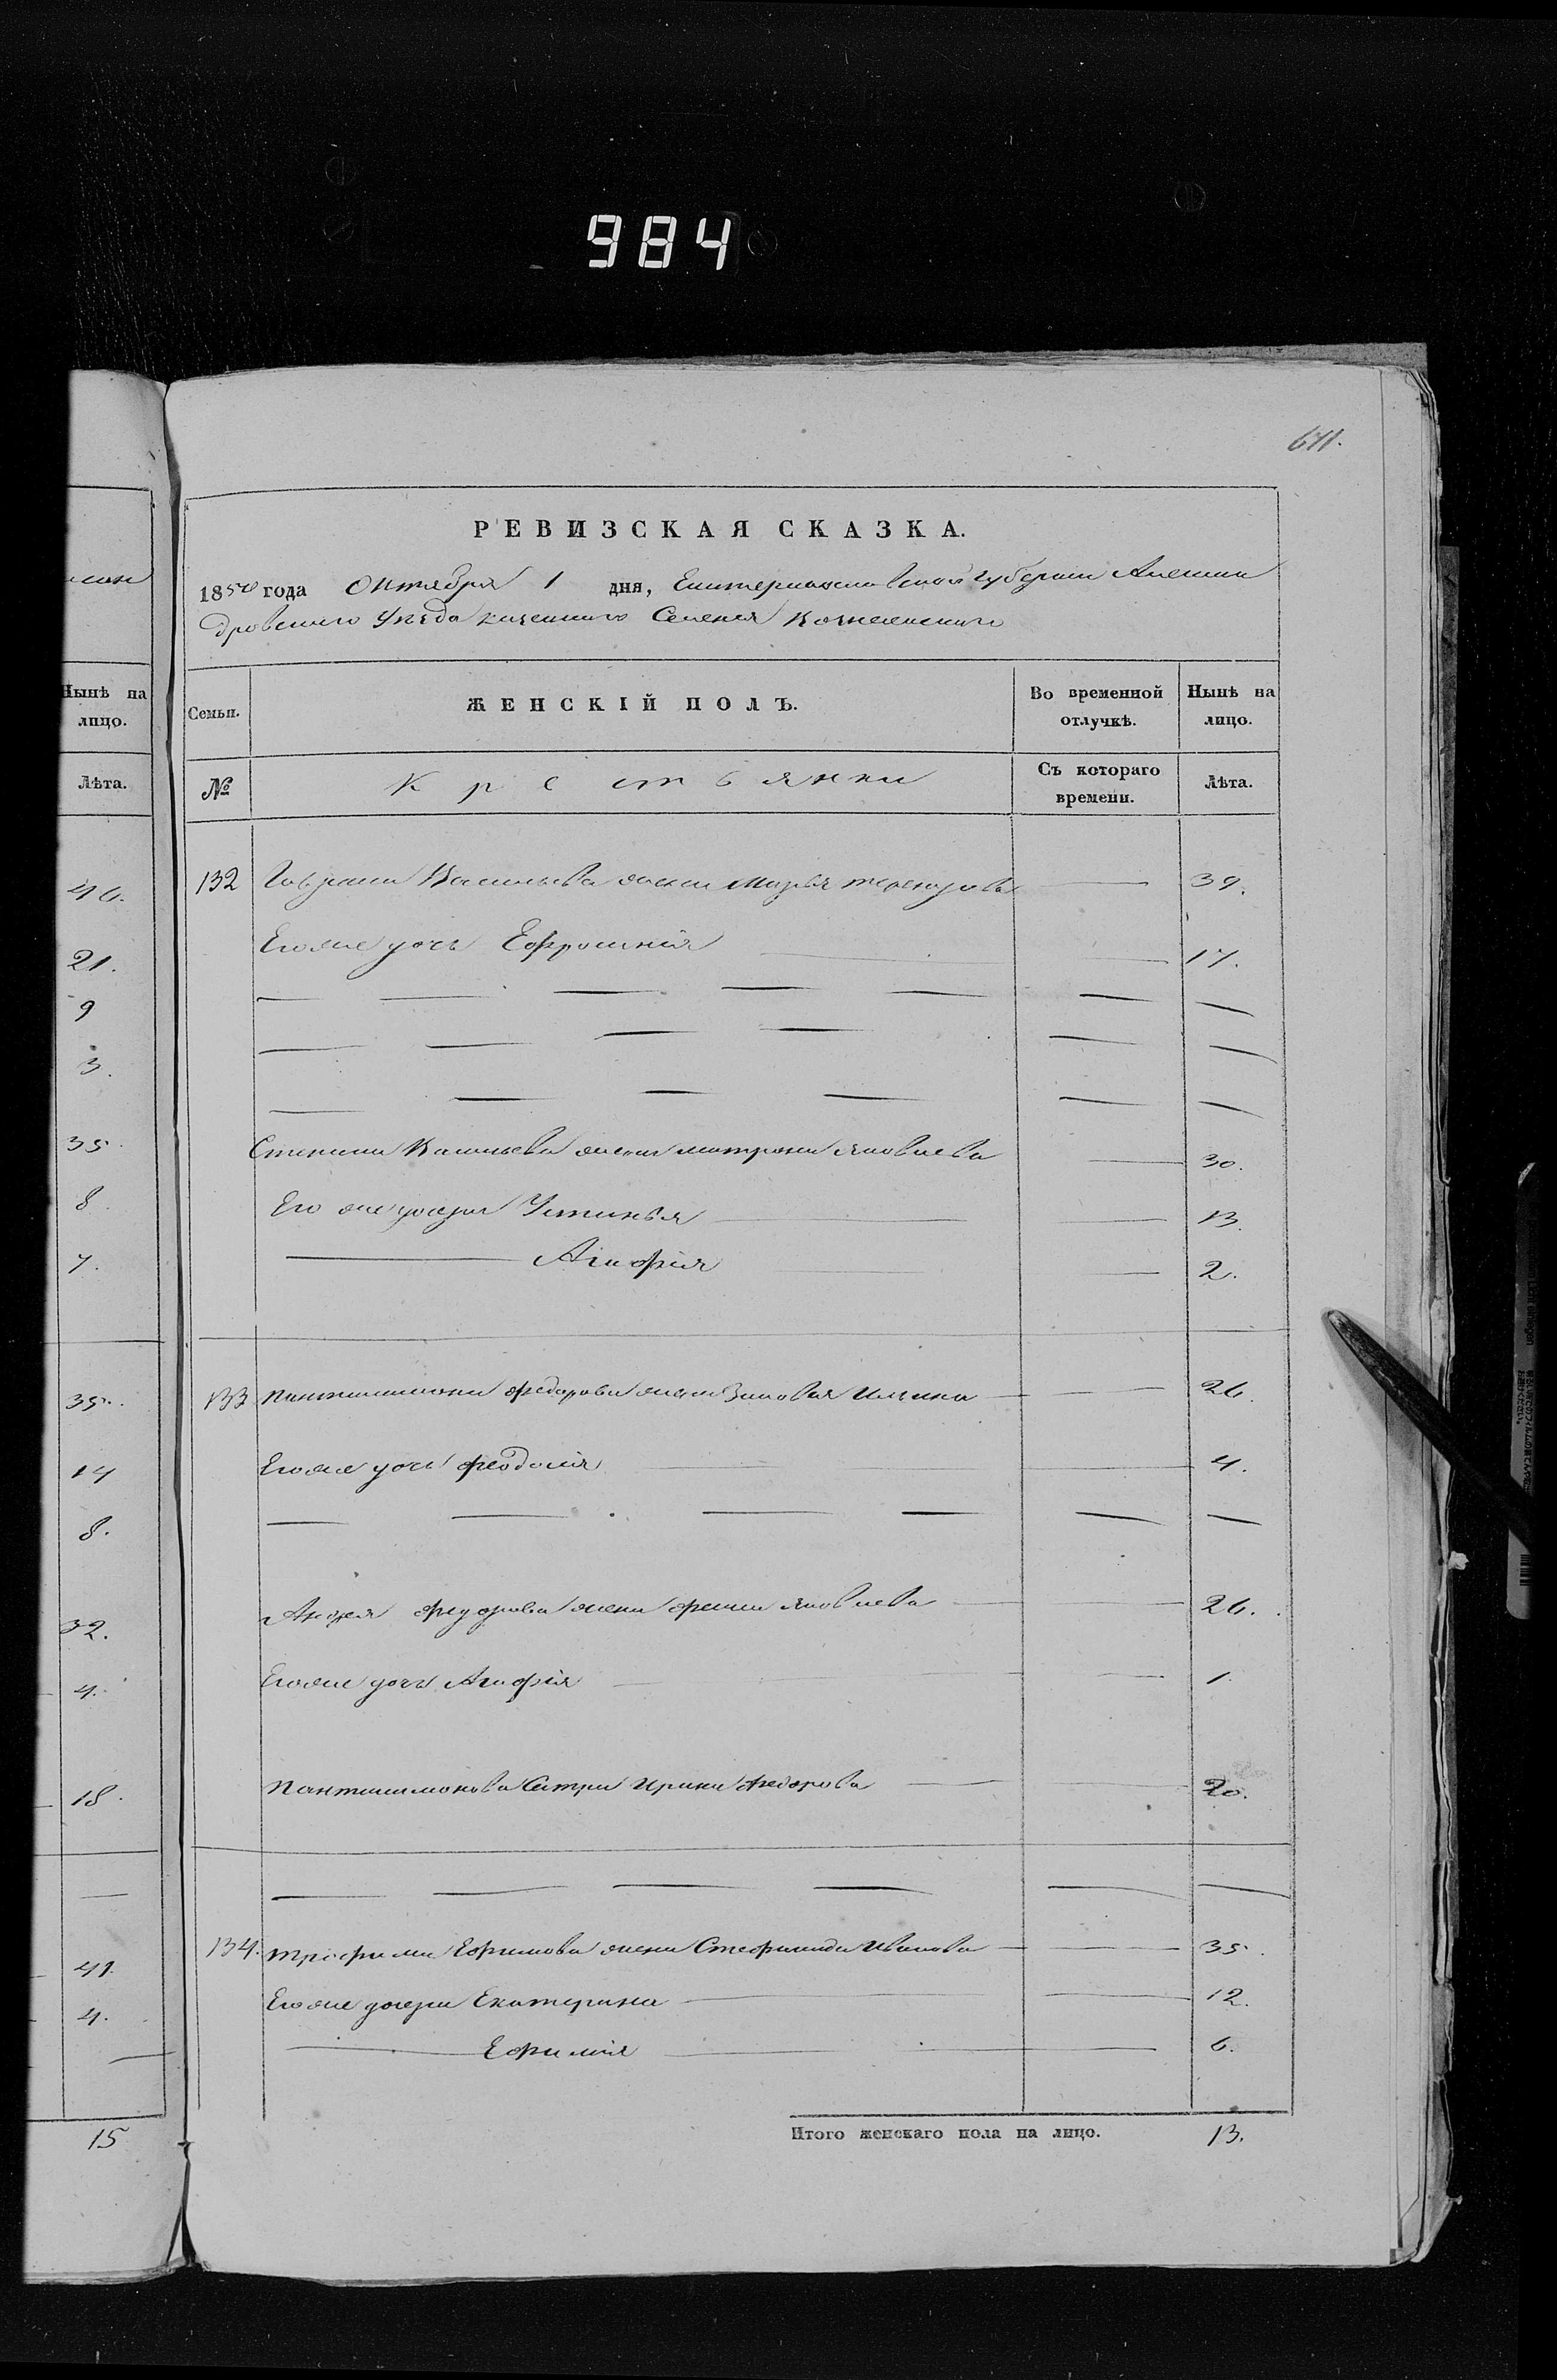 984
641.
РЕВИЗСКАЯ СКАЗКА.
1850 года Октября 1 дня, Екатеринославской губерніи Алексан
дровскаго Уезда казеннаго Селенія Вознесенскаго
Нынѣ на лицо.
Лѣта.
46.
21.
9
3.
35.
8.
7.
35.
14
8.
32.
4.
18.
41.
4.
15
Семьи. ЖЕНСКІЙ ПОЛЪ. Во временной отлучкѣ. Нынѣ на лицо.
№ Крестьянки Съ котораго времени. Лѣта.
132 Гаврила Васильева жена Марья 39.
Его же дочь Ефросинія 17.
Степана Васильева жена Матрона Яковлева 30.
Его же дочери Устинья 13.
Агафія 2.
133 Пантилимона Федорова жена Зиновья Ильина 26.
Его же дочь Феодосія 4.
Андрея Федорова жена Яковлева 26.
Его же дочь Агафія 1.
Пантилимонова Сестра Ирина Федорова 20.
134. Трофима Ефимова жена Стефанида Иванова 35.
Его же дочери Екатерина 12.
Ефимія 6.
Итого женскаго пола на лицо. 13.